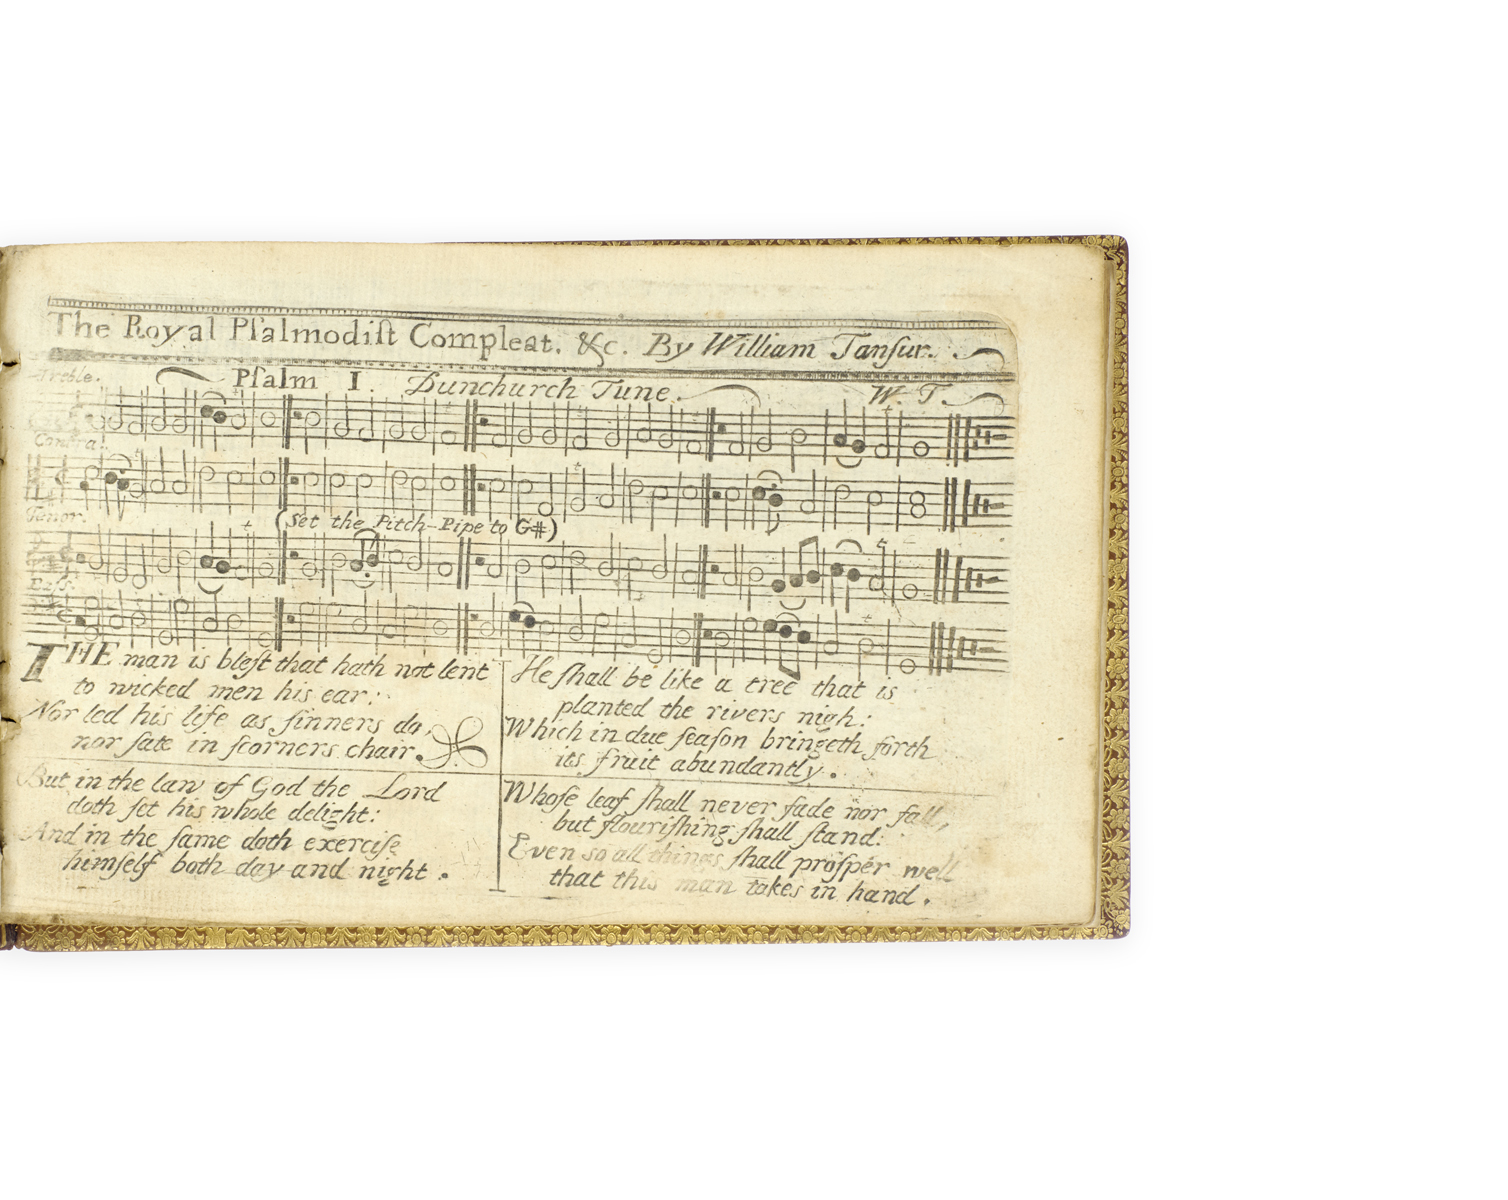 The Royal Pſalmodiſt Compleat, &c. By William Tanſur.
Treble.
Pſalm I. Dunchurch Tune. W. T.
Contra
Tenor.
(Set the Pitch-Pipe to G#)
Baſs.
THE man is bleſt that hath not lent
to wicked men his ear:
Nor led his life as ſinners do,
nor ſate in ſcorners chair.
But in the law of God the Lord
doth ſet his whole delight:
And in the ſame doth exerciſe
himſelf both day and night.
He ſhall be like a tree that is
planted the rivers nigh:
Which in due ſeaſon bringeth forth
its fruit abundantly.
Whoſe leaf ſhall never fade nor fall,
but flouriſhing ſhall ſtand:
Even so all things ſhall proſper well
that this man takes in hand.